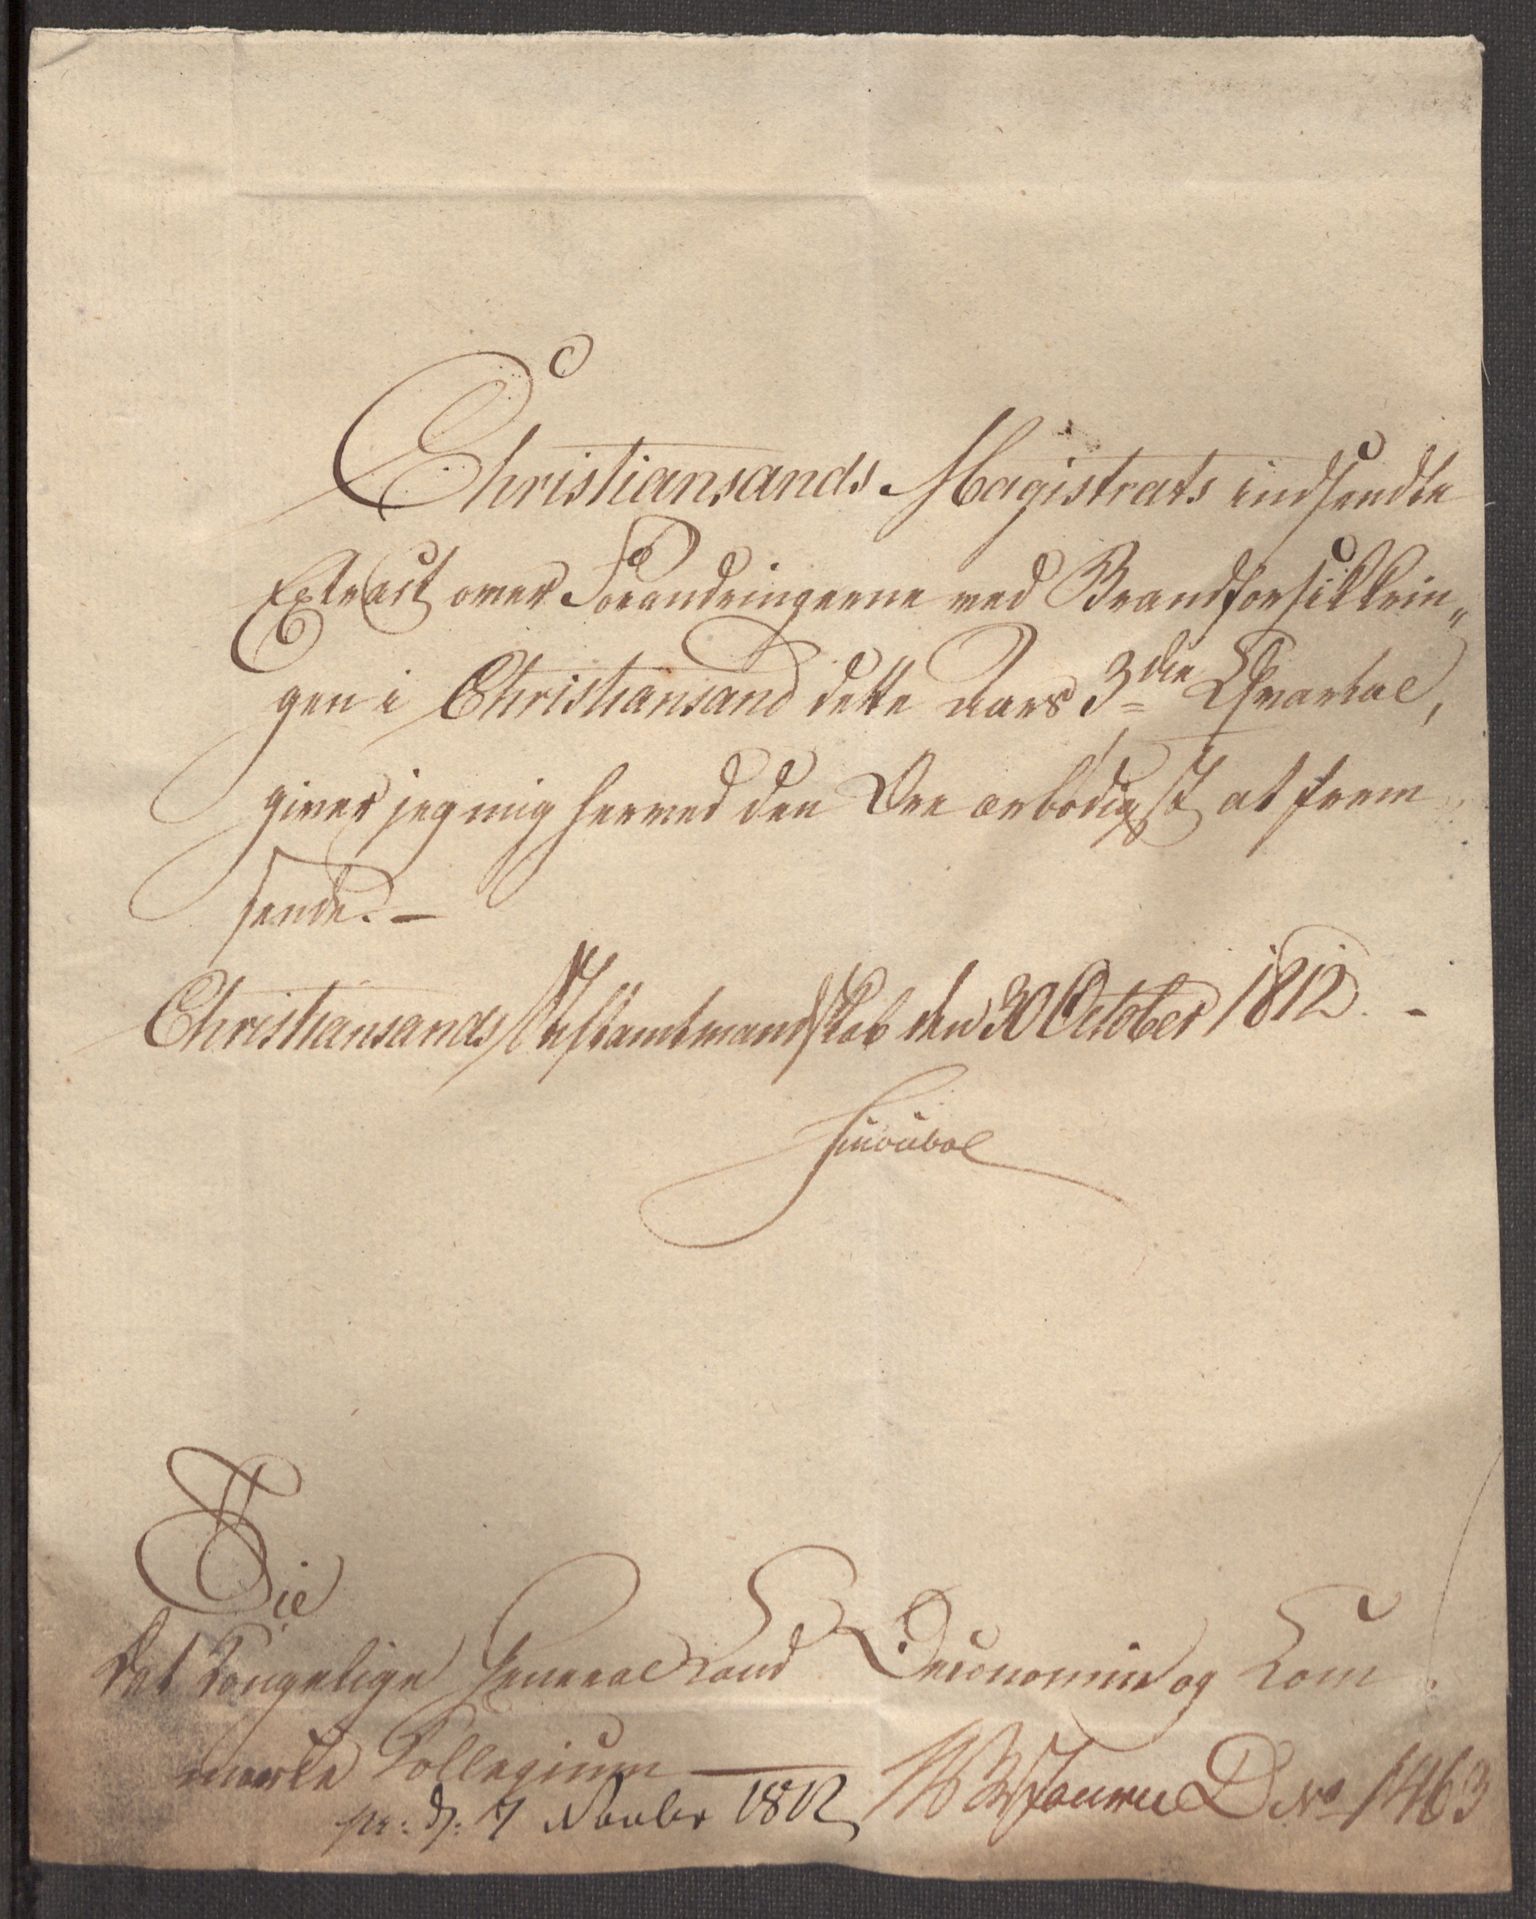 Christiansands Magistrats indsendte
Extract over Forandringerne ved Brandforsikkrin„
gen i Christiansand dette Aars 3die Qvartal,
giver jeg mig herved den Ære ærbødigst at frem
sende. —
Christiansands Stiftamtmandskab den 30 October 1812. -
Til
Det Kongelige General Land Oeconomie og Kom
merce Collegium
pr: d: 7 Novbr 1812
Journ D No 1463